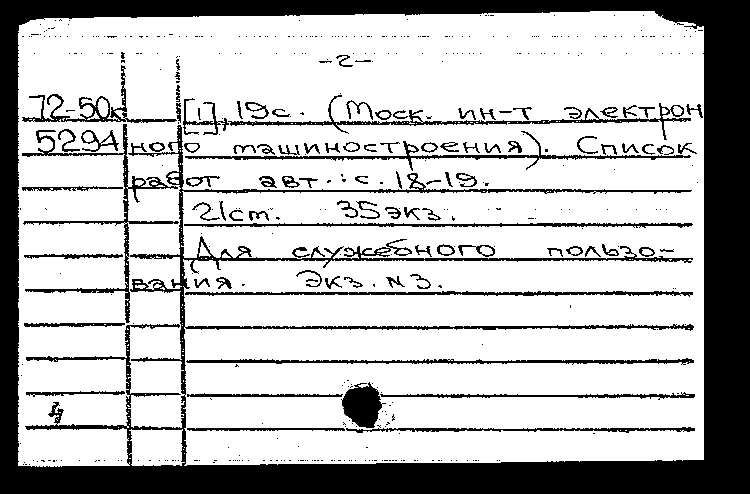 -2-
72-50к [1], 19с. (Моск. ин-т электрон
5294 ного машиностроения). Список
работ авт.: с. 18-19.
21ст. 35экз.
Для служебного пользо-
вания. Экз. N3.